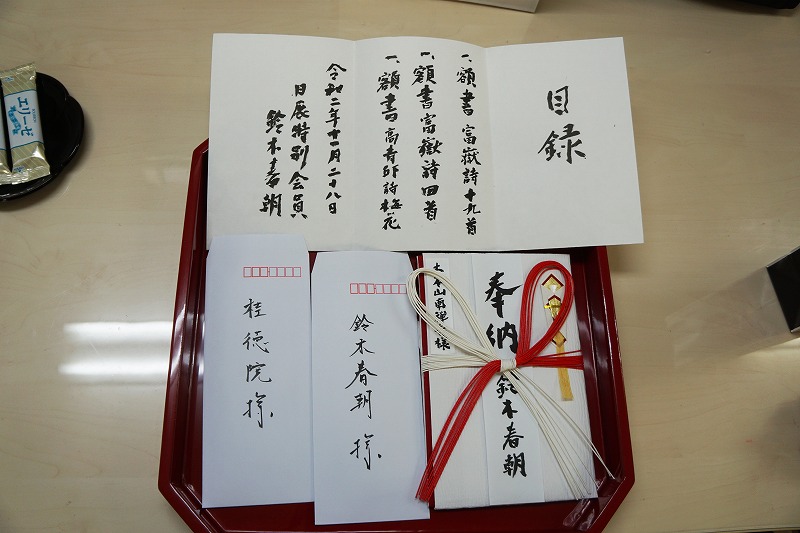 目録
一、額書 富嶽詩十九首
一、額書 富嶽詩四首
一、額書 高青邱詩梅花
令和二年十一月二十八日
日展特別会員
鈴木春朝
桂徳院様
鈴木春朝様
奉納
鈴木春朝
大本山南禅寺様
エリーゼ